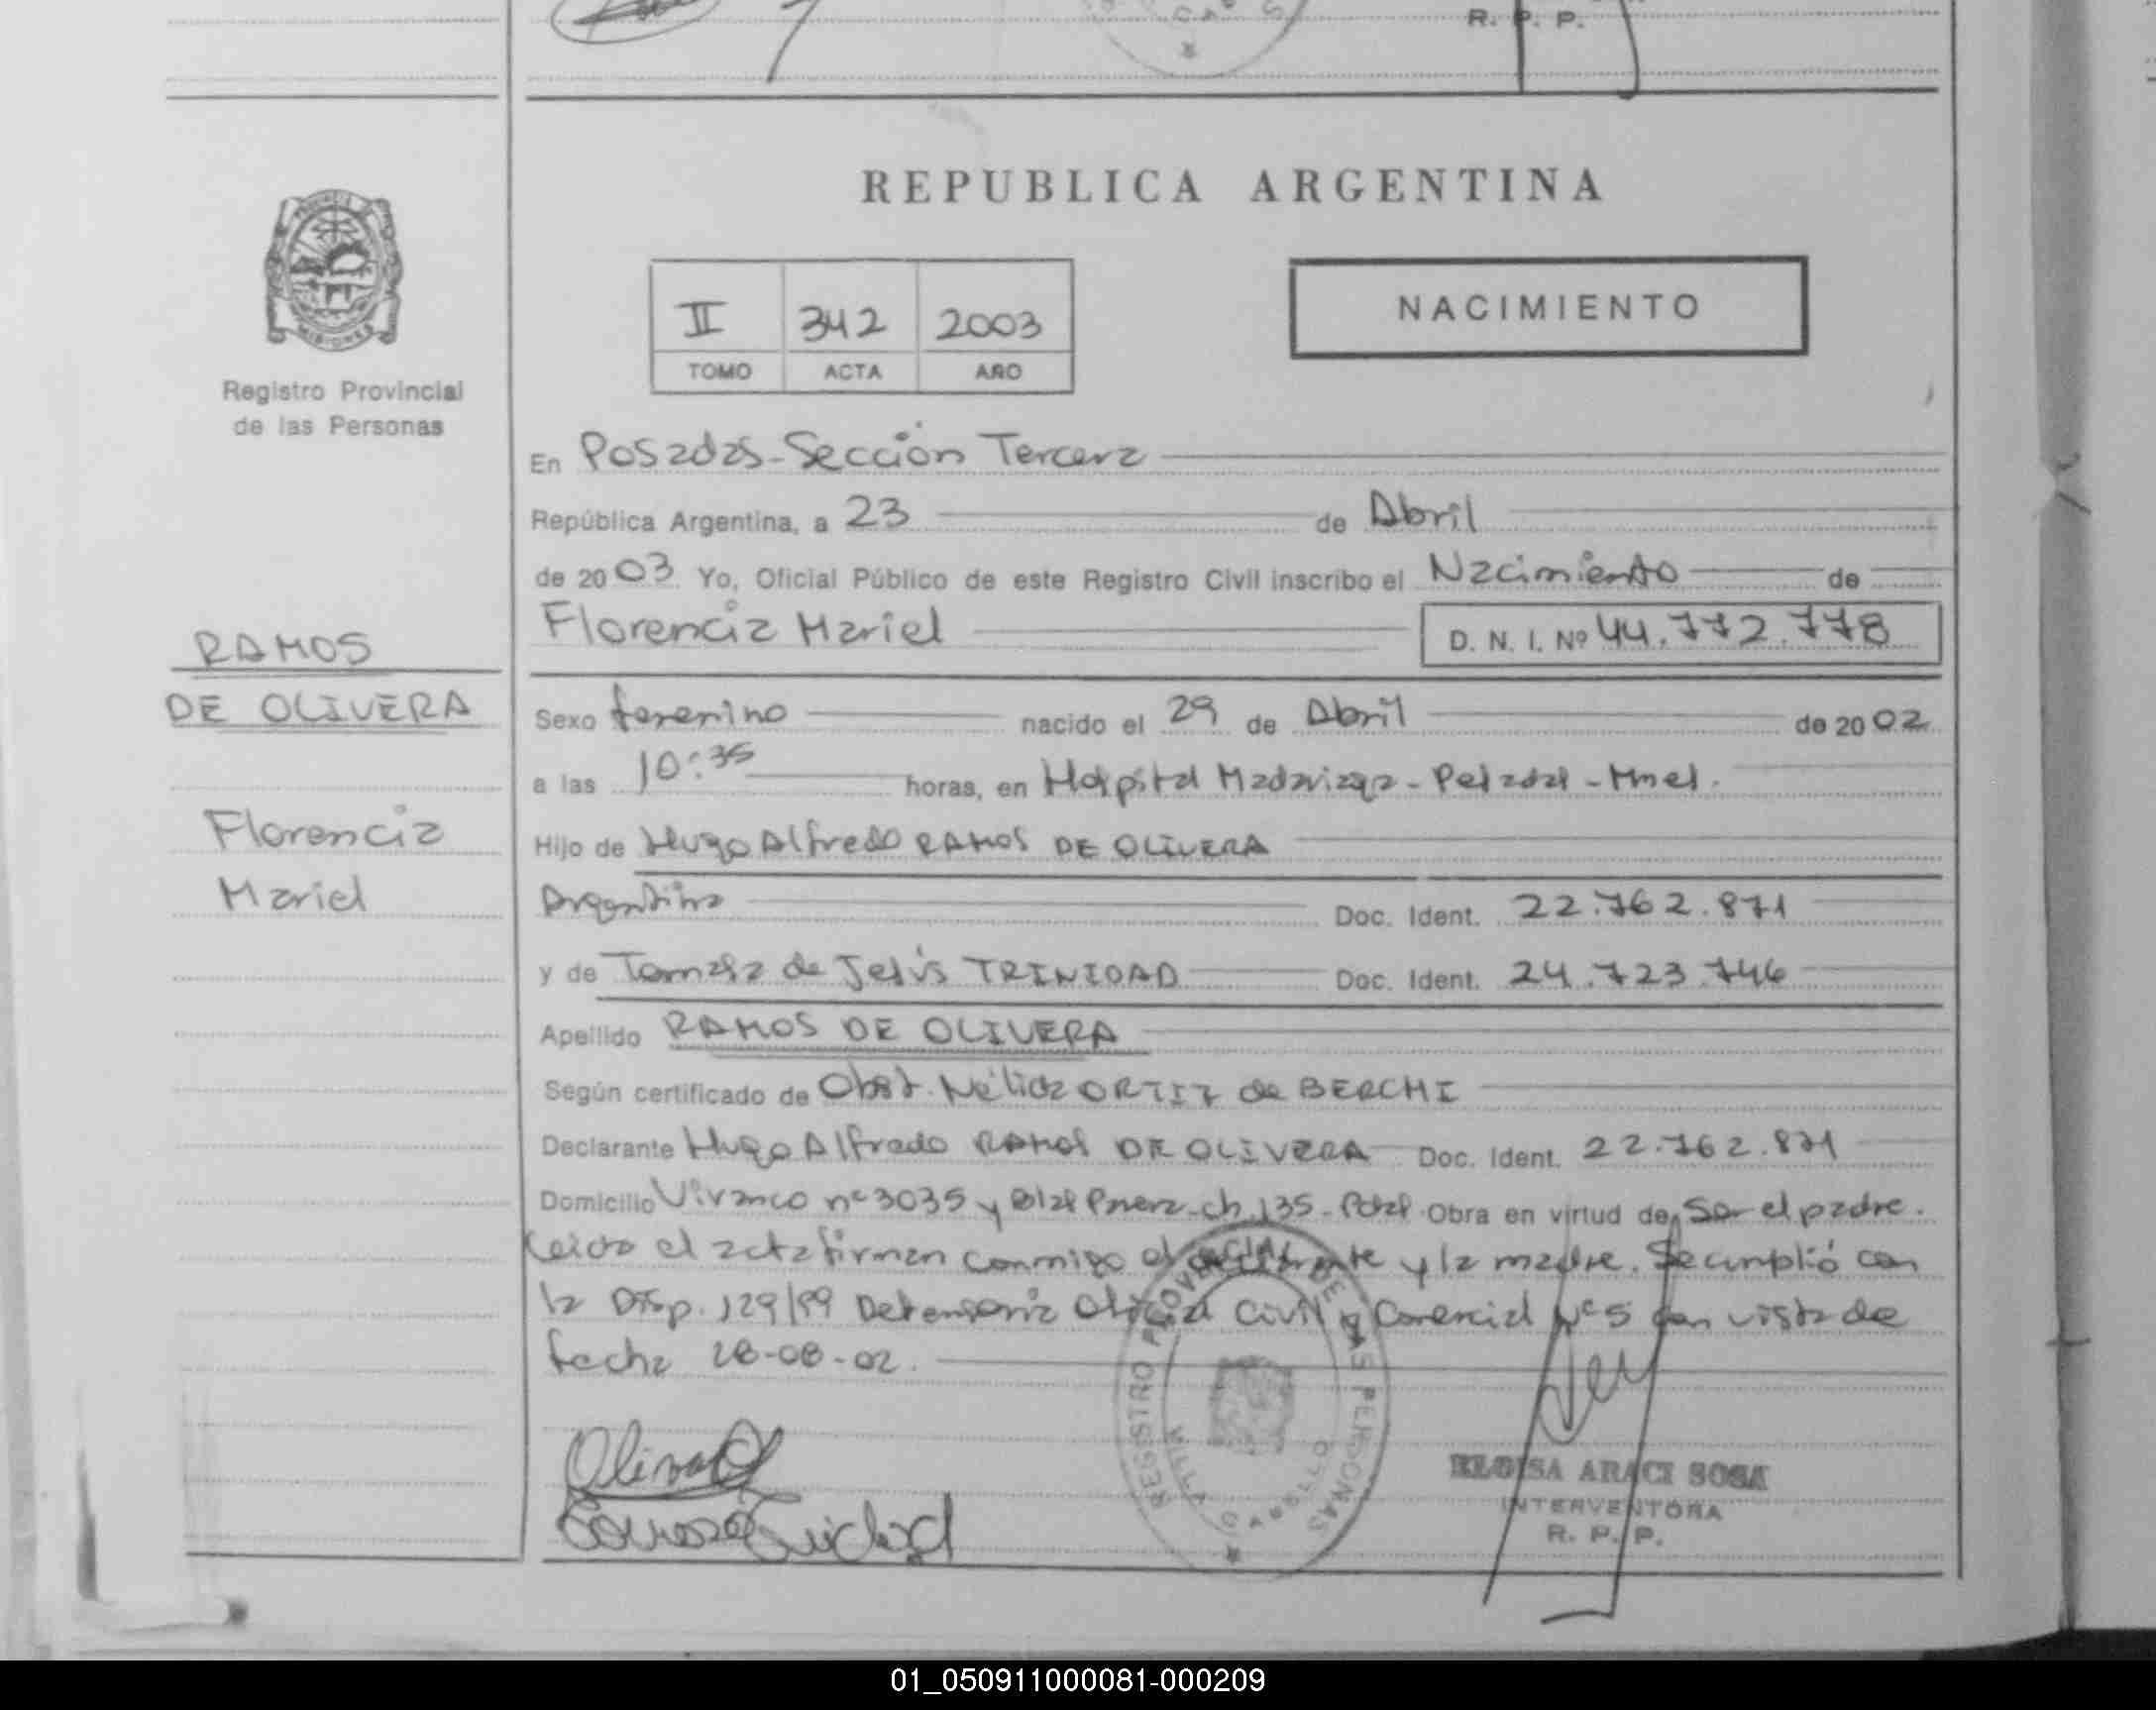 R. P. P.
REPUBLICA ARGENTINA
II 342 2003
TOMO ACTA AÑO
NACIMIENTO
MISIONES
Registro Provincial
de las Personas
RAMOS
DE OLIVERA
Florencia
Mariel
En Posadas-Sección Tercera
República Argentina, a 23 de Abril
de 2003 Yo, Oficial Público de este Registro Civil inscribo el Nacimiento de
Florencia Mariel D. N. I. Nº 44.772.778
Sexo femenino nacido el 29 de Abril de 2002
a las 10:35 horas, en Hospital Madariaga - Posadas - Mnes.
Hijo de Hugo Alfredo RAMOS DE OLIVERA
Argentina Doc. Ident. 22.762.871
y de Tomasa de Jesús TRINIDAD Doc. Ident. 24.723.746
Apellido RAMOS DE OLIVERA
Según certificado de Obst. Nélida ORTIZ de BERCHI
Declarante Hugo Alfredo RAMOS DE OLIVERA Doc. Ident. 22.762.871
Domicilio Vivanco nº 3035 y Blas Parera - ch. 135 - Pdas. Obra en virtud de Ser el padre.
Leída el acta firman conmigo el declarante y la madre. Se cumplió con
la Disp. 129/99 Defensoría Oficial Civil y Comercial Nº 5 con vista de
fecha 28-08-02.
REGISTRO PROVINCIAL DE LAS PERSONAS
VILLA CABELLO
ELOISA ARACI SOSA
INTERVENTORA
R. P. P.
01_050911000081-000209